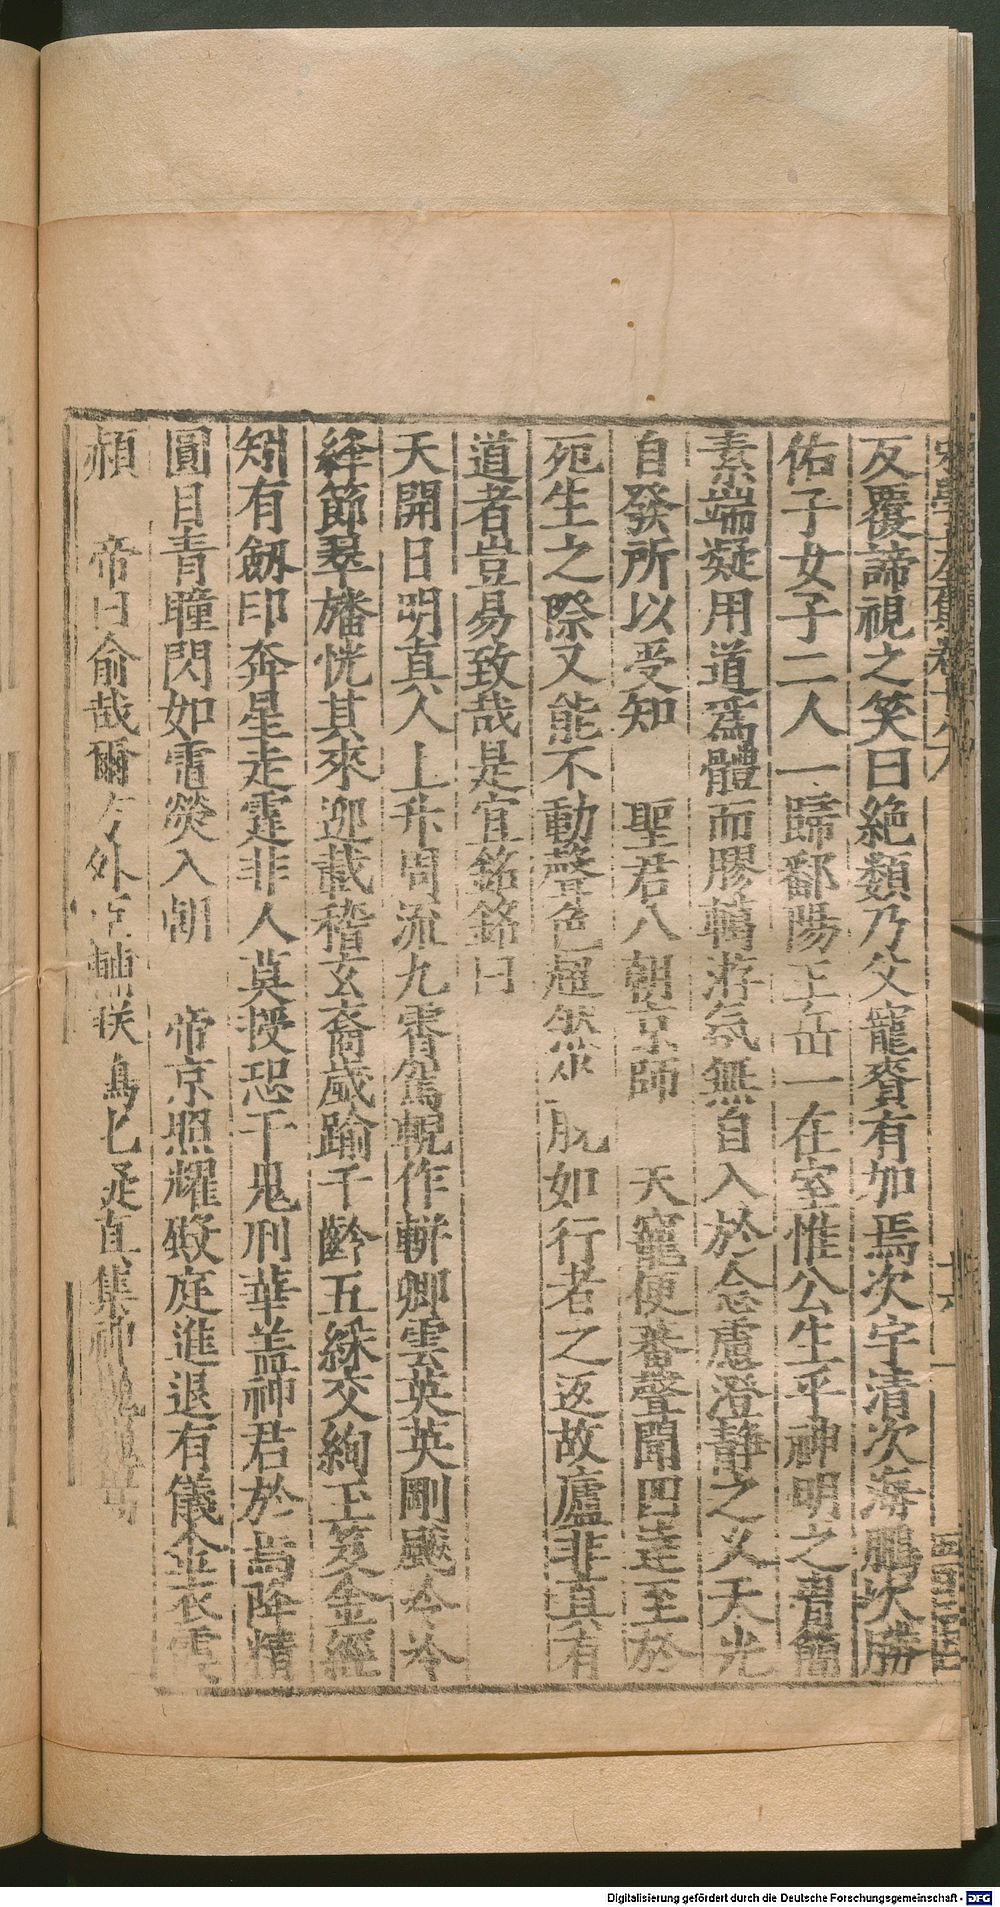 反覆諦視之笑曰絶類乃父寵賚有加焉次宇清次海鵬次勝
佑子女子二人一歸鄱陽王岳一在室惟公生平神明之胄簡
素端凝用道爲體而膠轕游氛無自入於念慮澄靜之乂天光
自發所以受知　聖君八朝京師　天寵便蕃聲聞四達至於
死生之際又能不動聲色超然 脫如行者之返故廬非眞有
道者豈易致哉是宜銘銘曰
天開日明真人上升周流九霄篤輗作輧卿雲英英剛飈冷冷
絳節翠旛恍其來迎載稽玄裔歲踰千齡五綵交絢玉笈金經
矧有劔印奔星走霆非人莫授恐干鬼刑華盖神君於焉降精
圓目青瞳閃如電熒入朝　帝京照耀殿庭進退有儀金衣
頳　帝曰俞哉爾方外臣 直集神
Digitalisierung gefördert durch die Deutsche Forschungsgemeinschaft - DFG